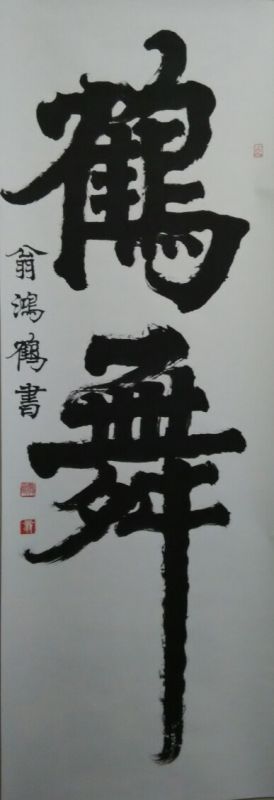 鶴舞
翁鴻鶴書